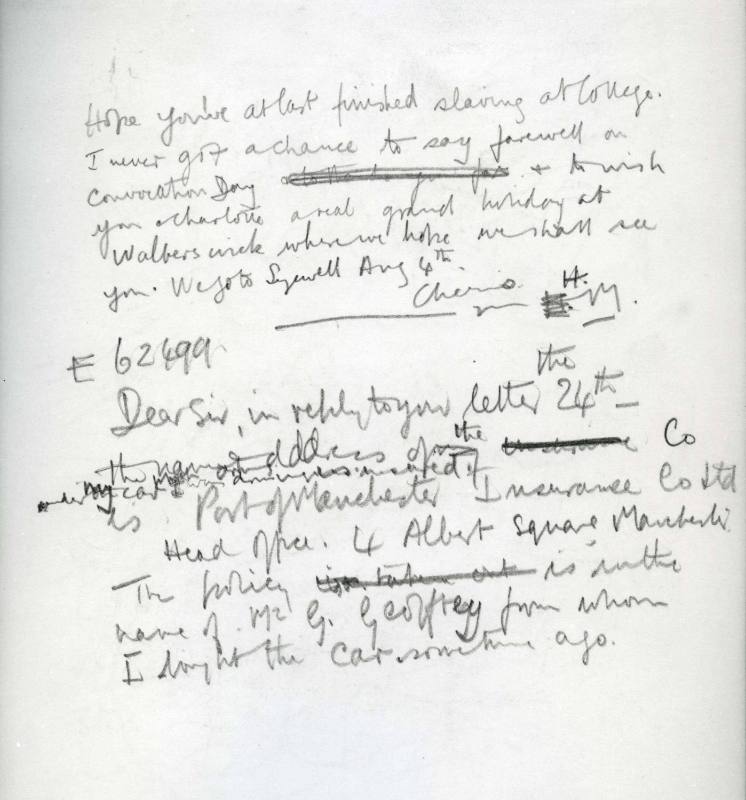 Hope you've at last finished slaving at College.
I never got a chance to say farewell on
Convocation Day + to wish
you + Charlotte a real grand holiday at
Walberswick where we hope we shall see
you. We go to Sizewell Aug 4th
Cheerio H.
M.
E 62499
the
Dear Sir, in reply to your letter 24th
the name & address of the Co
my car is insured
is Port of Manchester Insurance Co Ltd
Head Office. 4 Albert Square Manchester
The policy is in the
name of Mr G. Geoffrey from whom
I bought the car sometime ago.